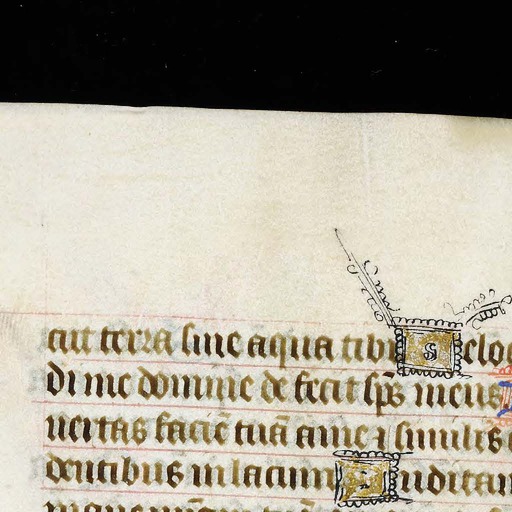 cut terra sine aqua tibi S eloc
di me domine de fecit sp̅s meus
uertas facie̅ tua̅ a me ⁊ similis
dentibus in lacum A uditam